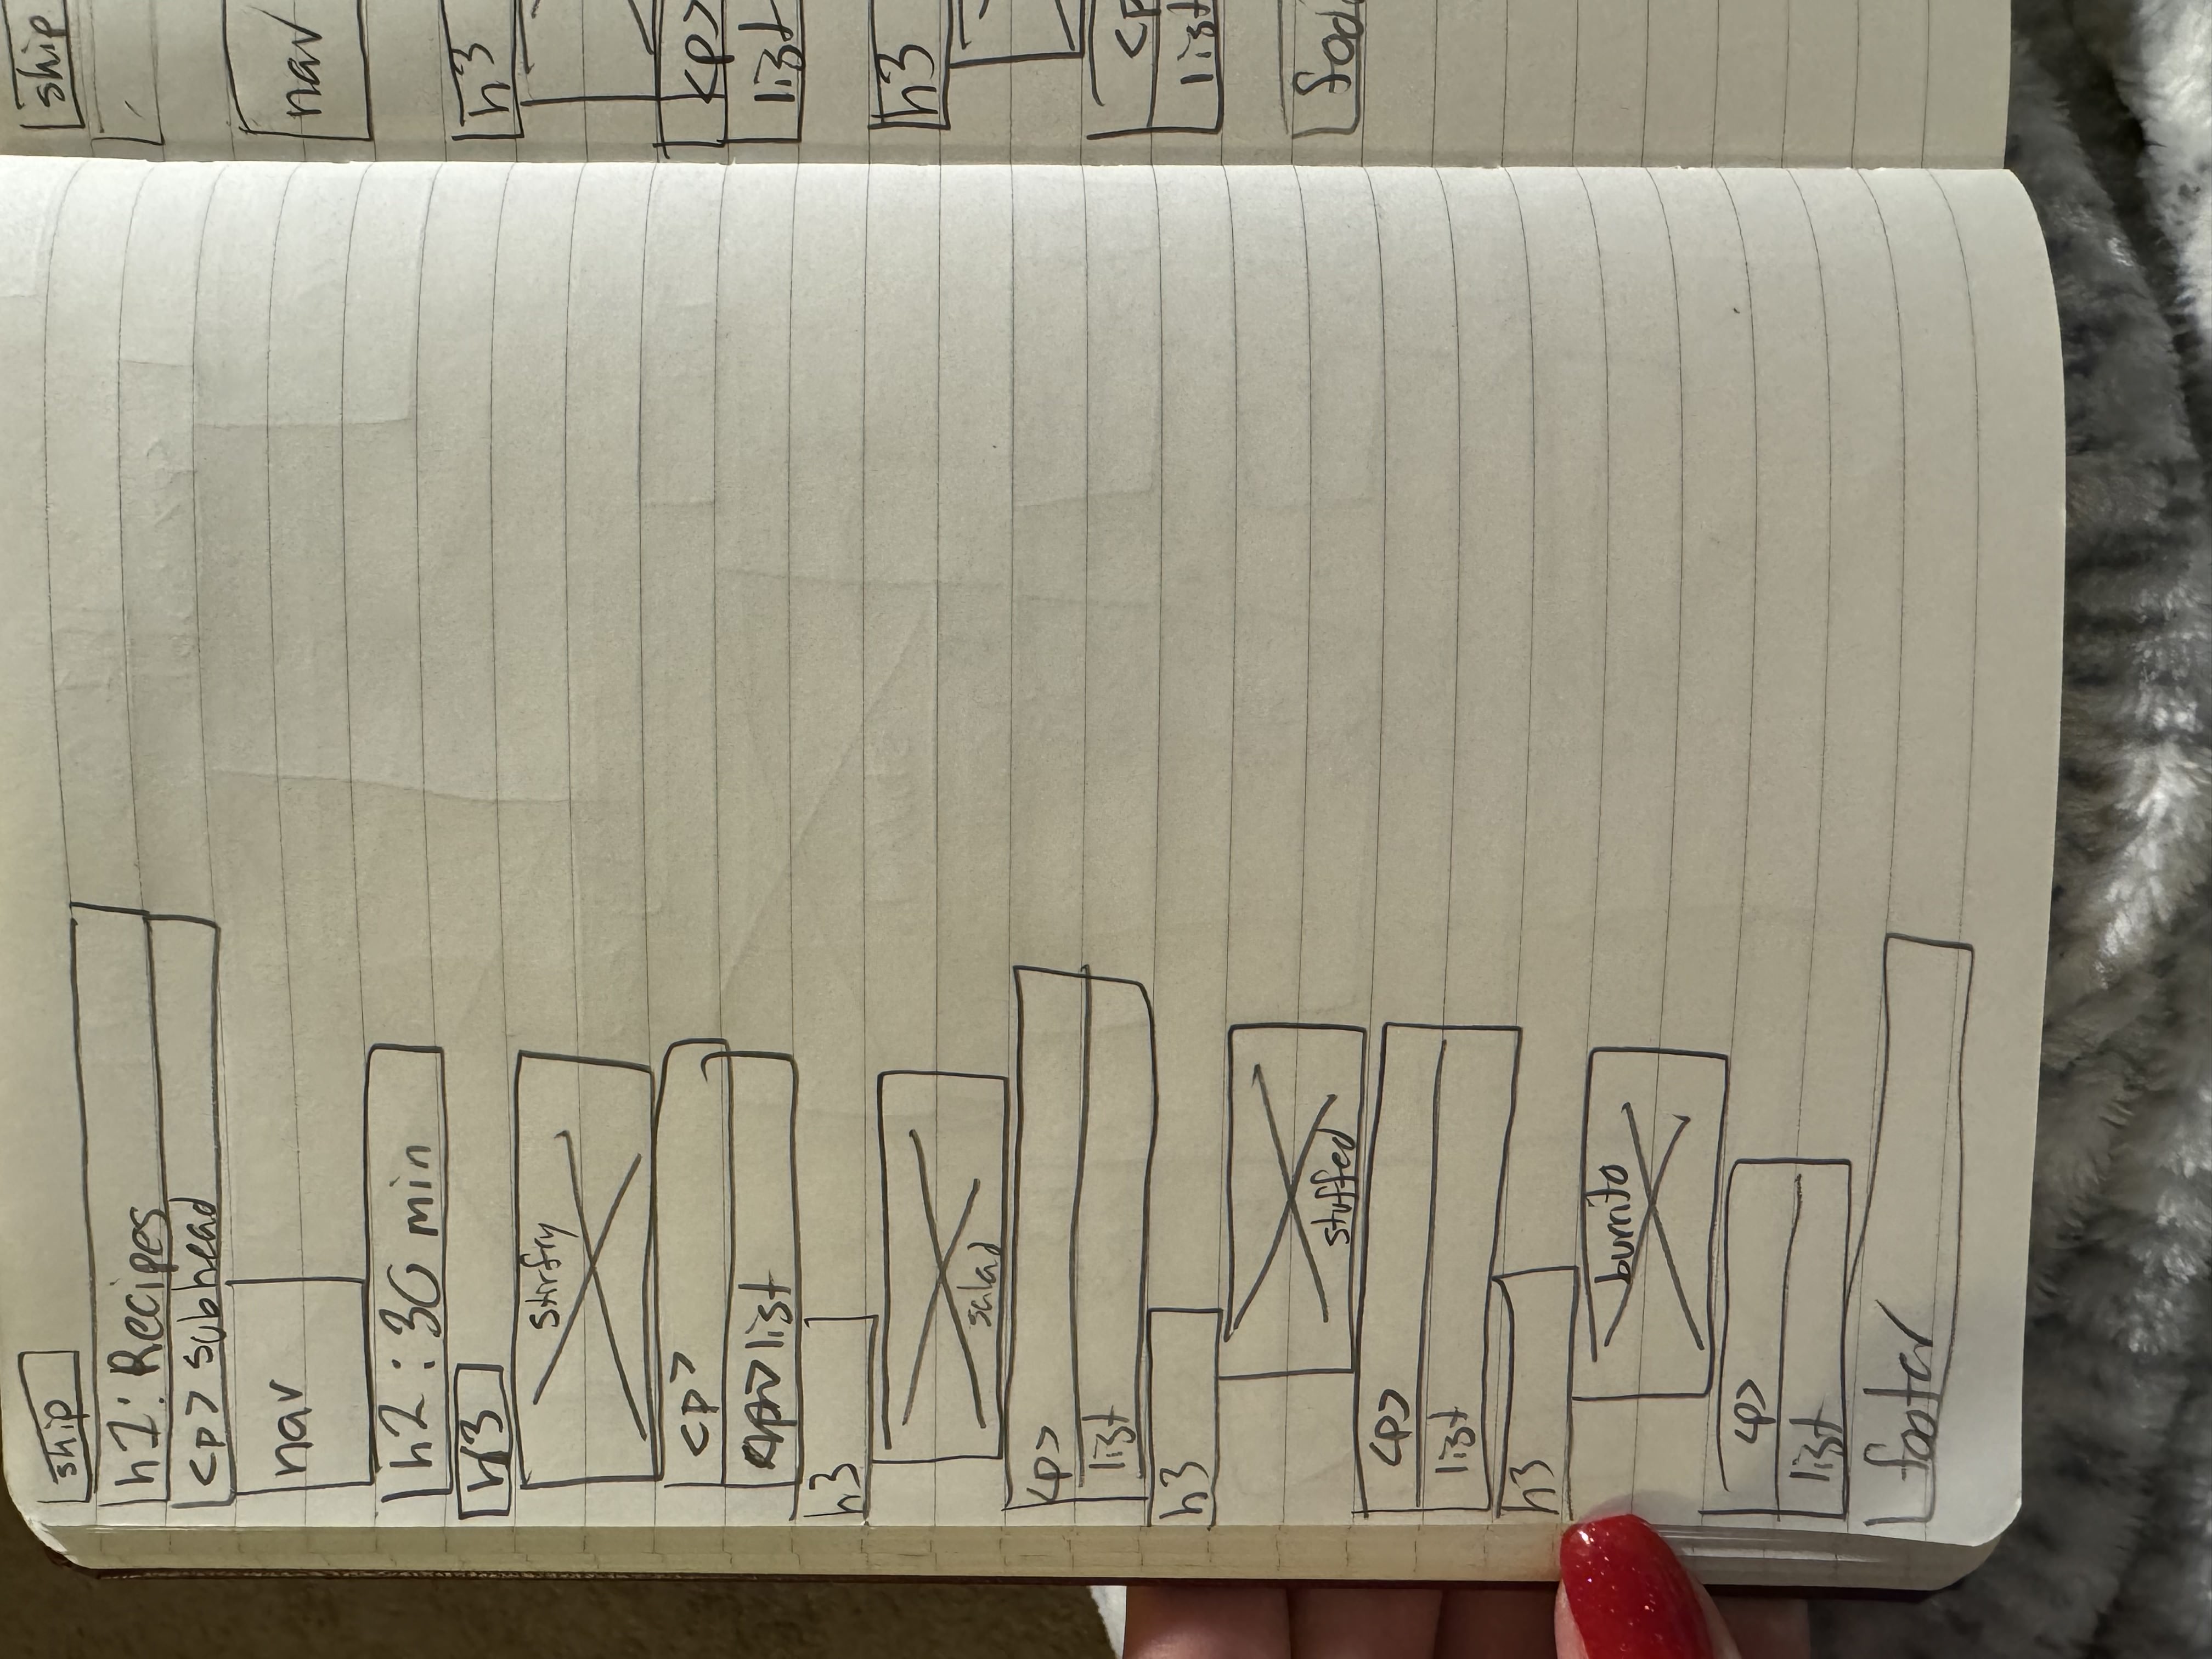 ship
h1: Recipes
<p> subhead
nav
h2: 30 min
h3
stirfry
<p>
list
h3
salad
<p>
list
h3
stuffed
<p>
list
h3
burrito
<p>
list
footer
ship
nav
h3
<p>
list
h3
<p
list